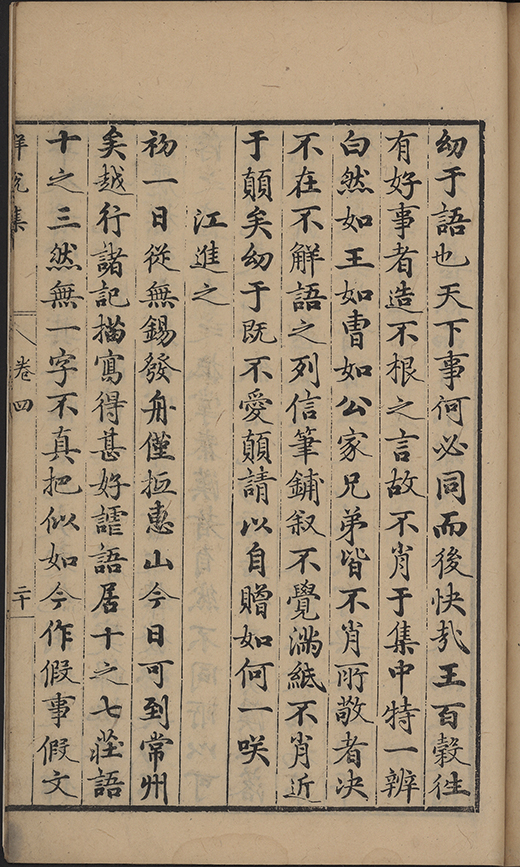 幼于語也天下事何必同而後快㢤王百穀徃
有好事者造不根之言故不肖于集中特一辨
白然如王如曺如公家兄弟皆不肖所敬者决
不在不觧語之列信筆鋪叙不覺滿紙不肖近
于顛矣幼于既不愛顛請以自贈如何一咲
江進之
初一日從無錫發舟僅抵惠山今日可到常州
矣越行諸記描寫得甚好謔語居十之七莊語
十之三然無一字不真把似如今作假事假文
觧脫集
卷四
二十